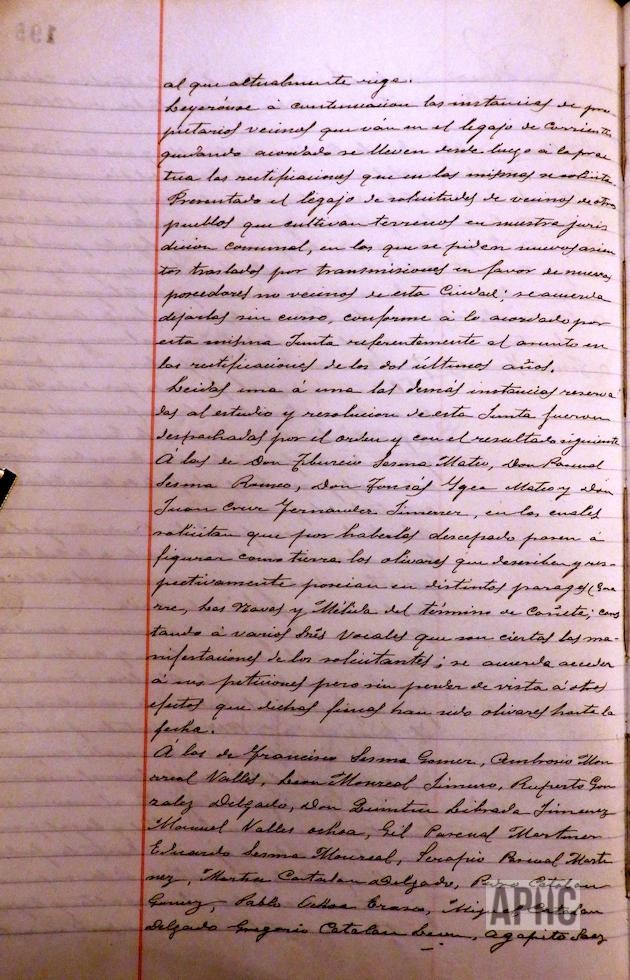 195
al que actualmente rige.
Leyerónse á continuacion las instancias de pro
pietarios vecinos que ván en el legajo de corriente
quedando acordado se lleven desde luego á la prác
tica las rectificaciones que en las mismas se solicita.
Presentado el legajo de solicitudes de vecinos de otros
pueblos que cultivan terrenos en nuestra juris
dicion comunal, en las que se piden nuevos asien
tos traslados por transmisiones en favor de nuevos
poseedores no vecinos de esta Ciudad; se acuerda
dejarlas sin curso, conforme á lo acordado por
esta misma Junta referentemente al asunto en
las rectificaciones de los dos últimos años.
Leidas una á una las demás instancias reserva
das al estudio y resolucion de esta Junta fueron
despachadas por el orden y con el resultado siguiente
Á las de Don Tiburcio Sesma Mateo, Don Pascual
Sesma Romeo, Don Tomás Ygea Mateo y Don
Juan Cruz Fernandez Jimenez, en las cuales
solicitan que por haberlos descepado pasen á
figurar como tierra los olivares que describen y res
pectivamente poseian en distintos parages
Las Navas y Mélida del término de Cañete; cons
tando á varios Srés Vocales que son ciertas las ma-
nifestaciones de los solicitantes; se acuerda acceder
á sus peticiones pero sin perder de vista á otros
efectos que dichas fincas han sido olivares hasta la
fecha.
Á las de Francisco Sesma Gomez, Ambrosio Mon
real Valles, Leon Monreal Jimeno, Ruperto Gon
zalez Delgado, Don Dimitrio Librada Jimenez
Manuel Valles Ochoa, Gil Pascual Martinez
Eduardo Sesma Monreal, Serapio Pascual Marti
nez, Martin Catalan Delgado, Catalan
Gomez, Pablo Ochoa Eraso, Miguel Catalan
Delgado Gregorio Catalan Leon, Agapito Saez
APHC